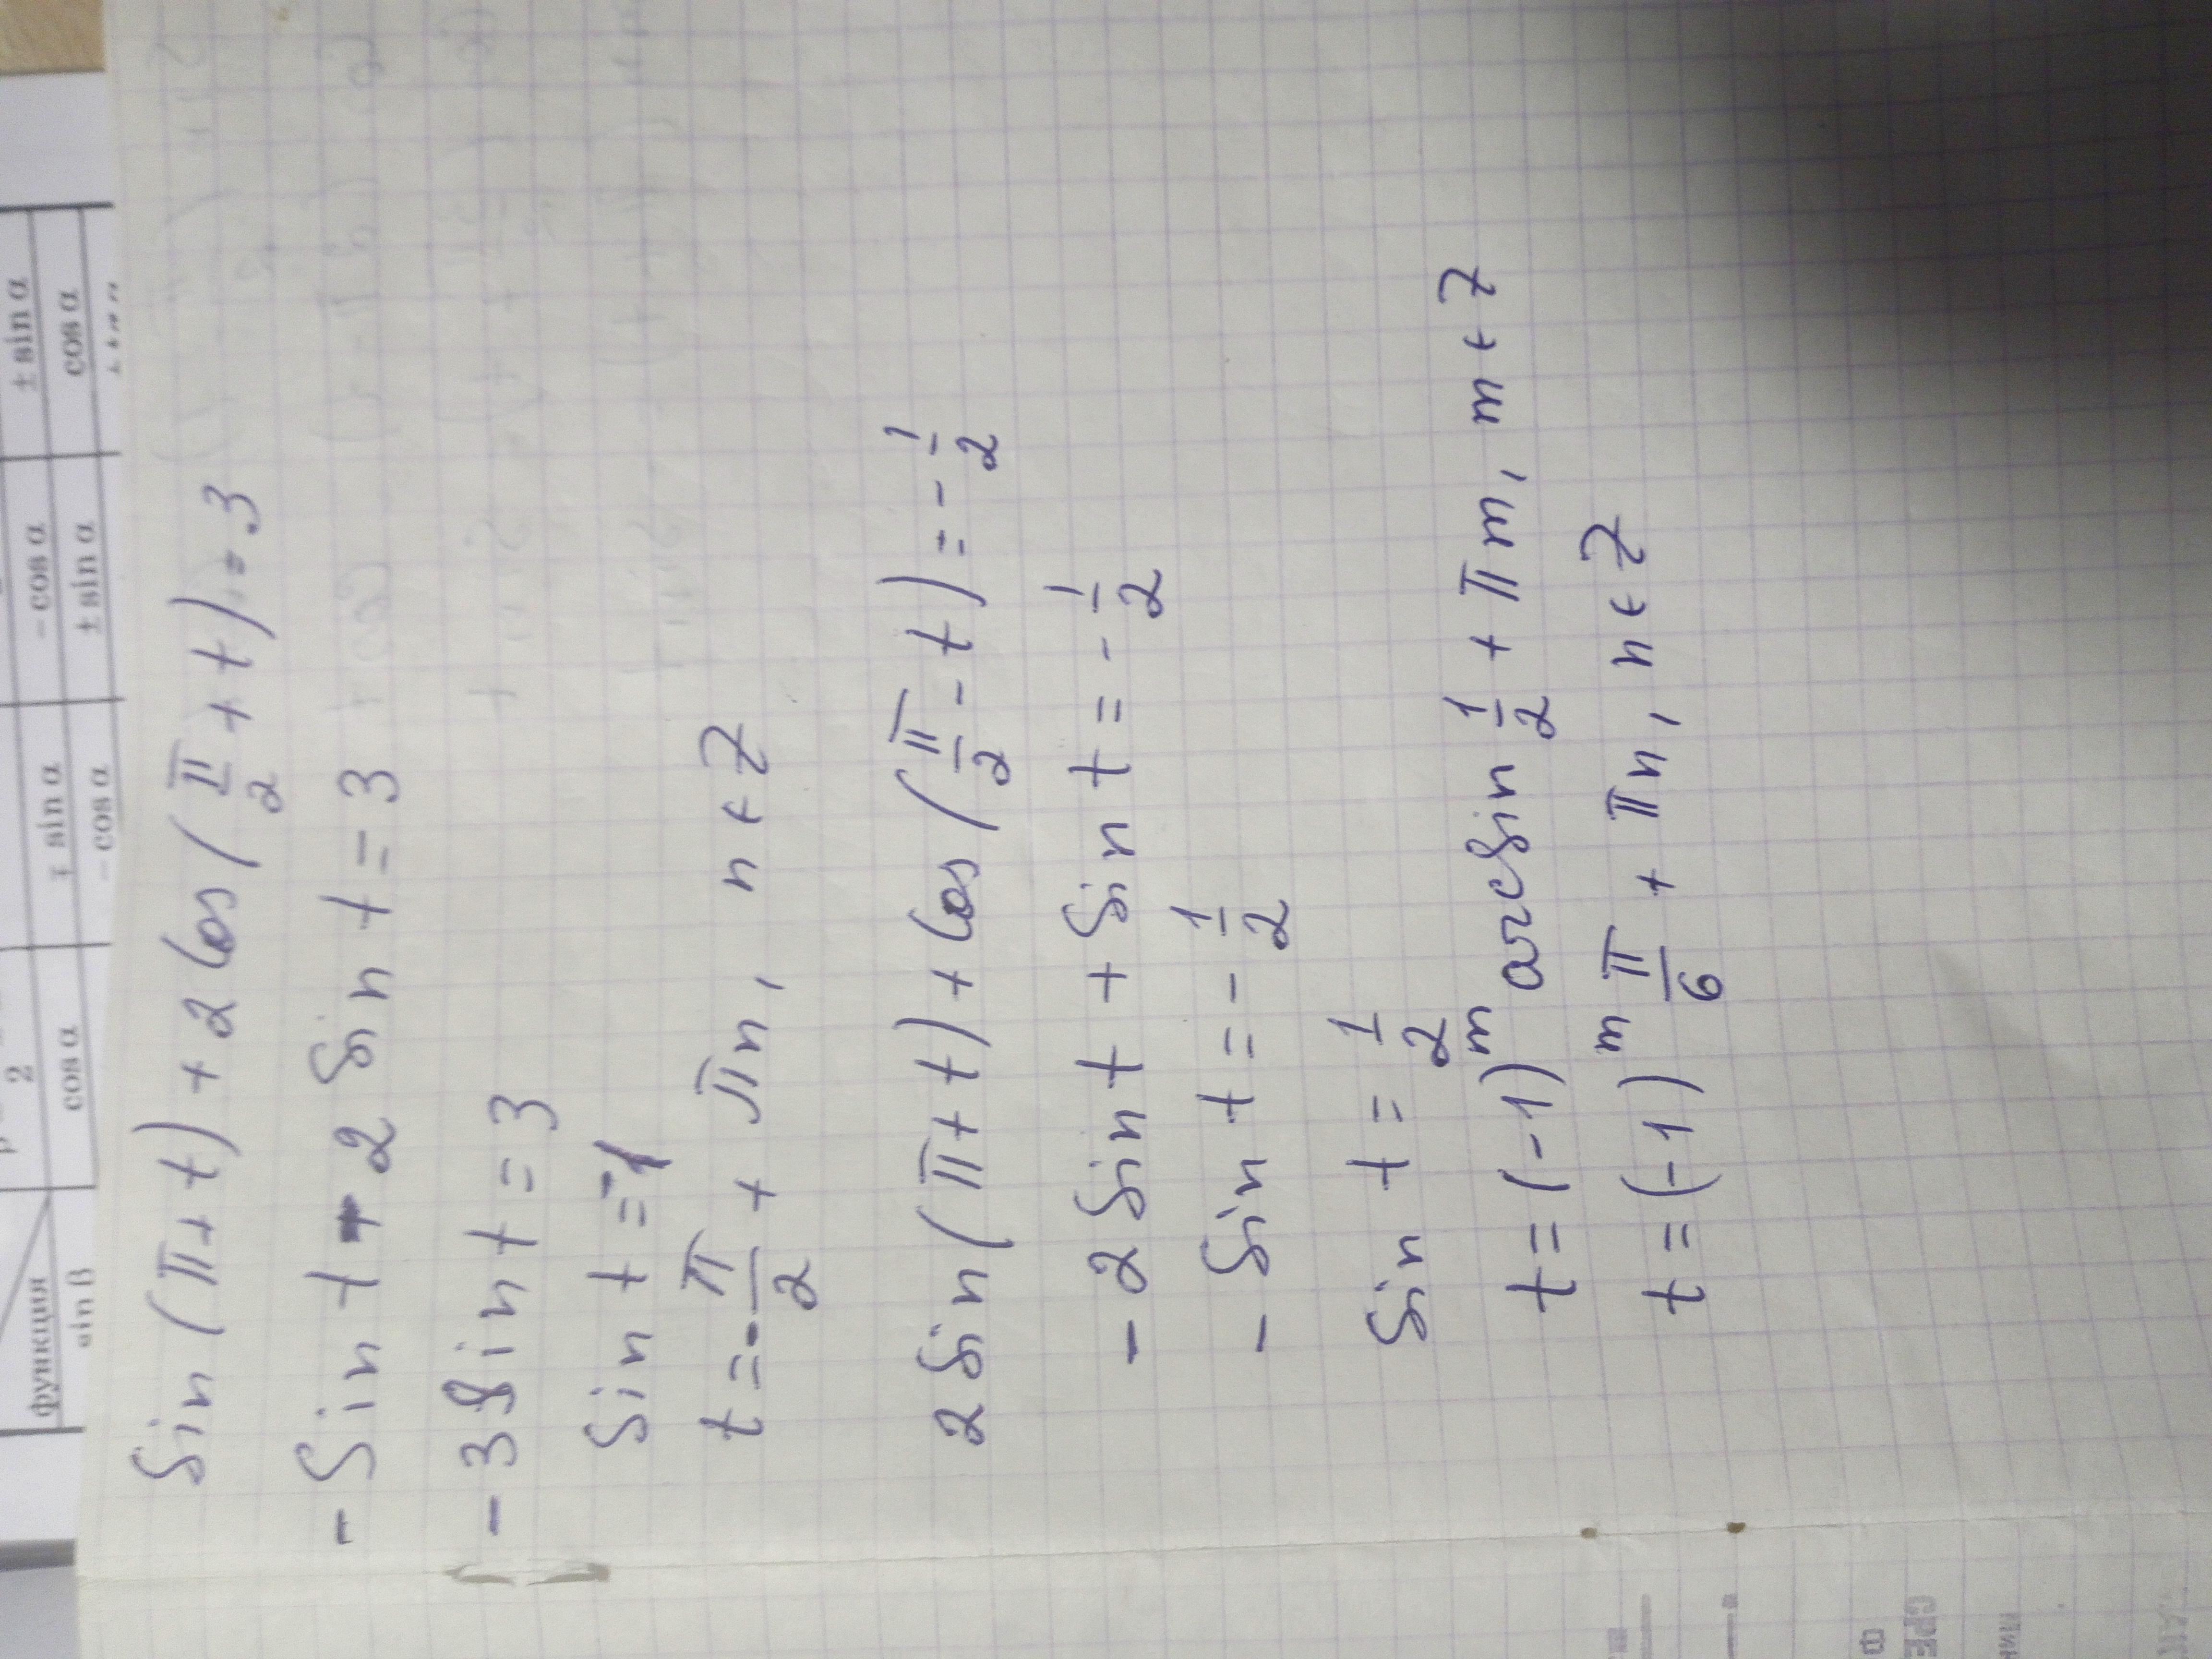 ± sin α
- cos α
2
cos α
± sin α
∓ sin α
cos α
- cos α
функция
sin β
Sin (π + t) + 2 Cos (π/2 + t) = 3
- Sin t - 2 Sin t = 3
- 3 Sin t = 3
Sin t = -1
t = - π/2 + πn, n ∈ Z
2 Sin (π + t) + Cos (π/2 - t) = - 1/2
- 2 Sin t + Sin t = - 1/2
- Sin t = - 1/2
Sin t = 1/2
t = (-1)^m arcSin 1/2 + πm, m ∈ Z
t = (-1)^m π/6 + πn, n ∈ Z